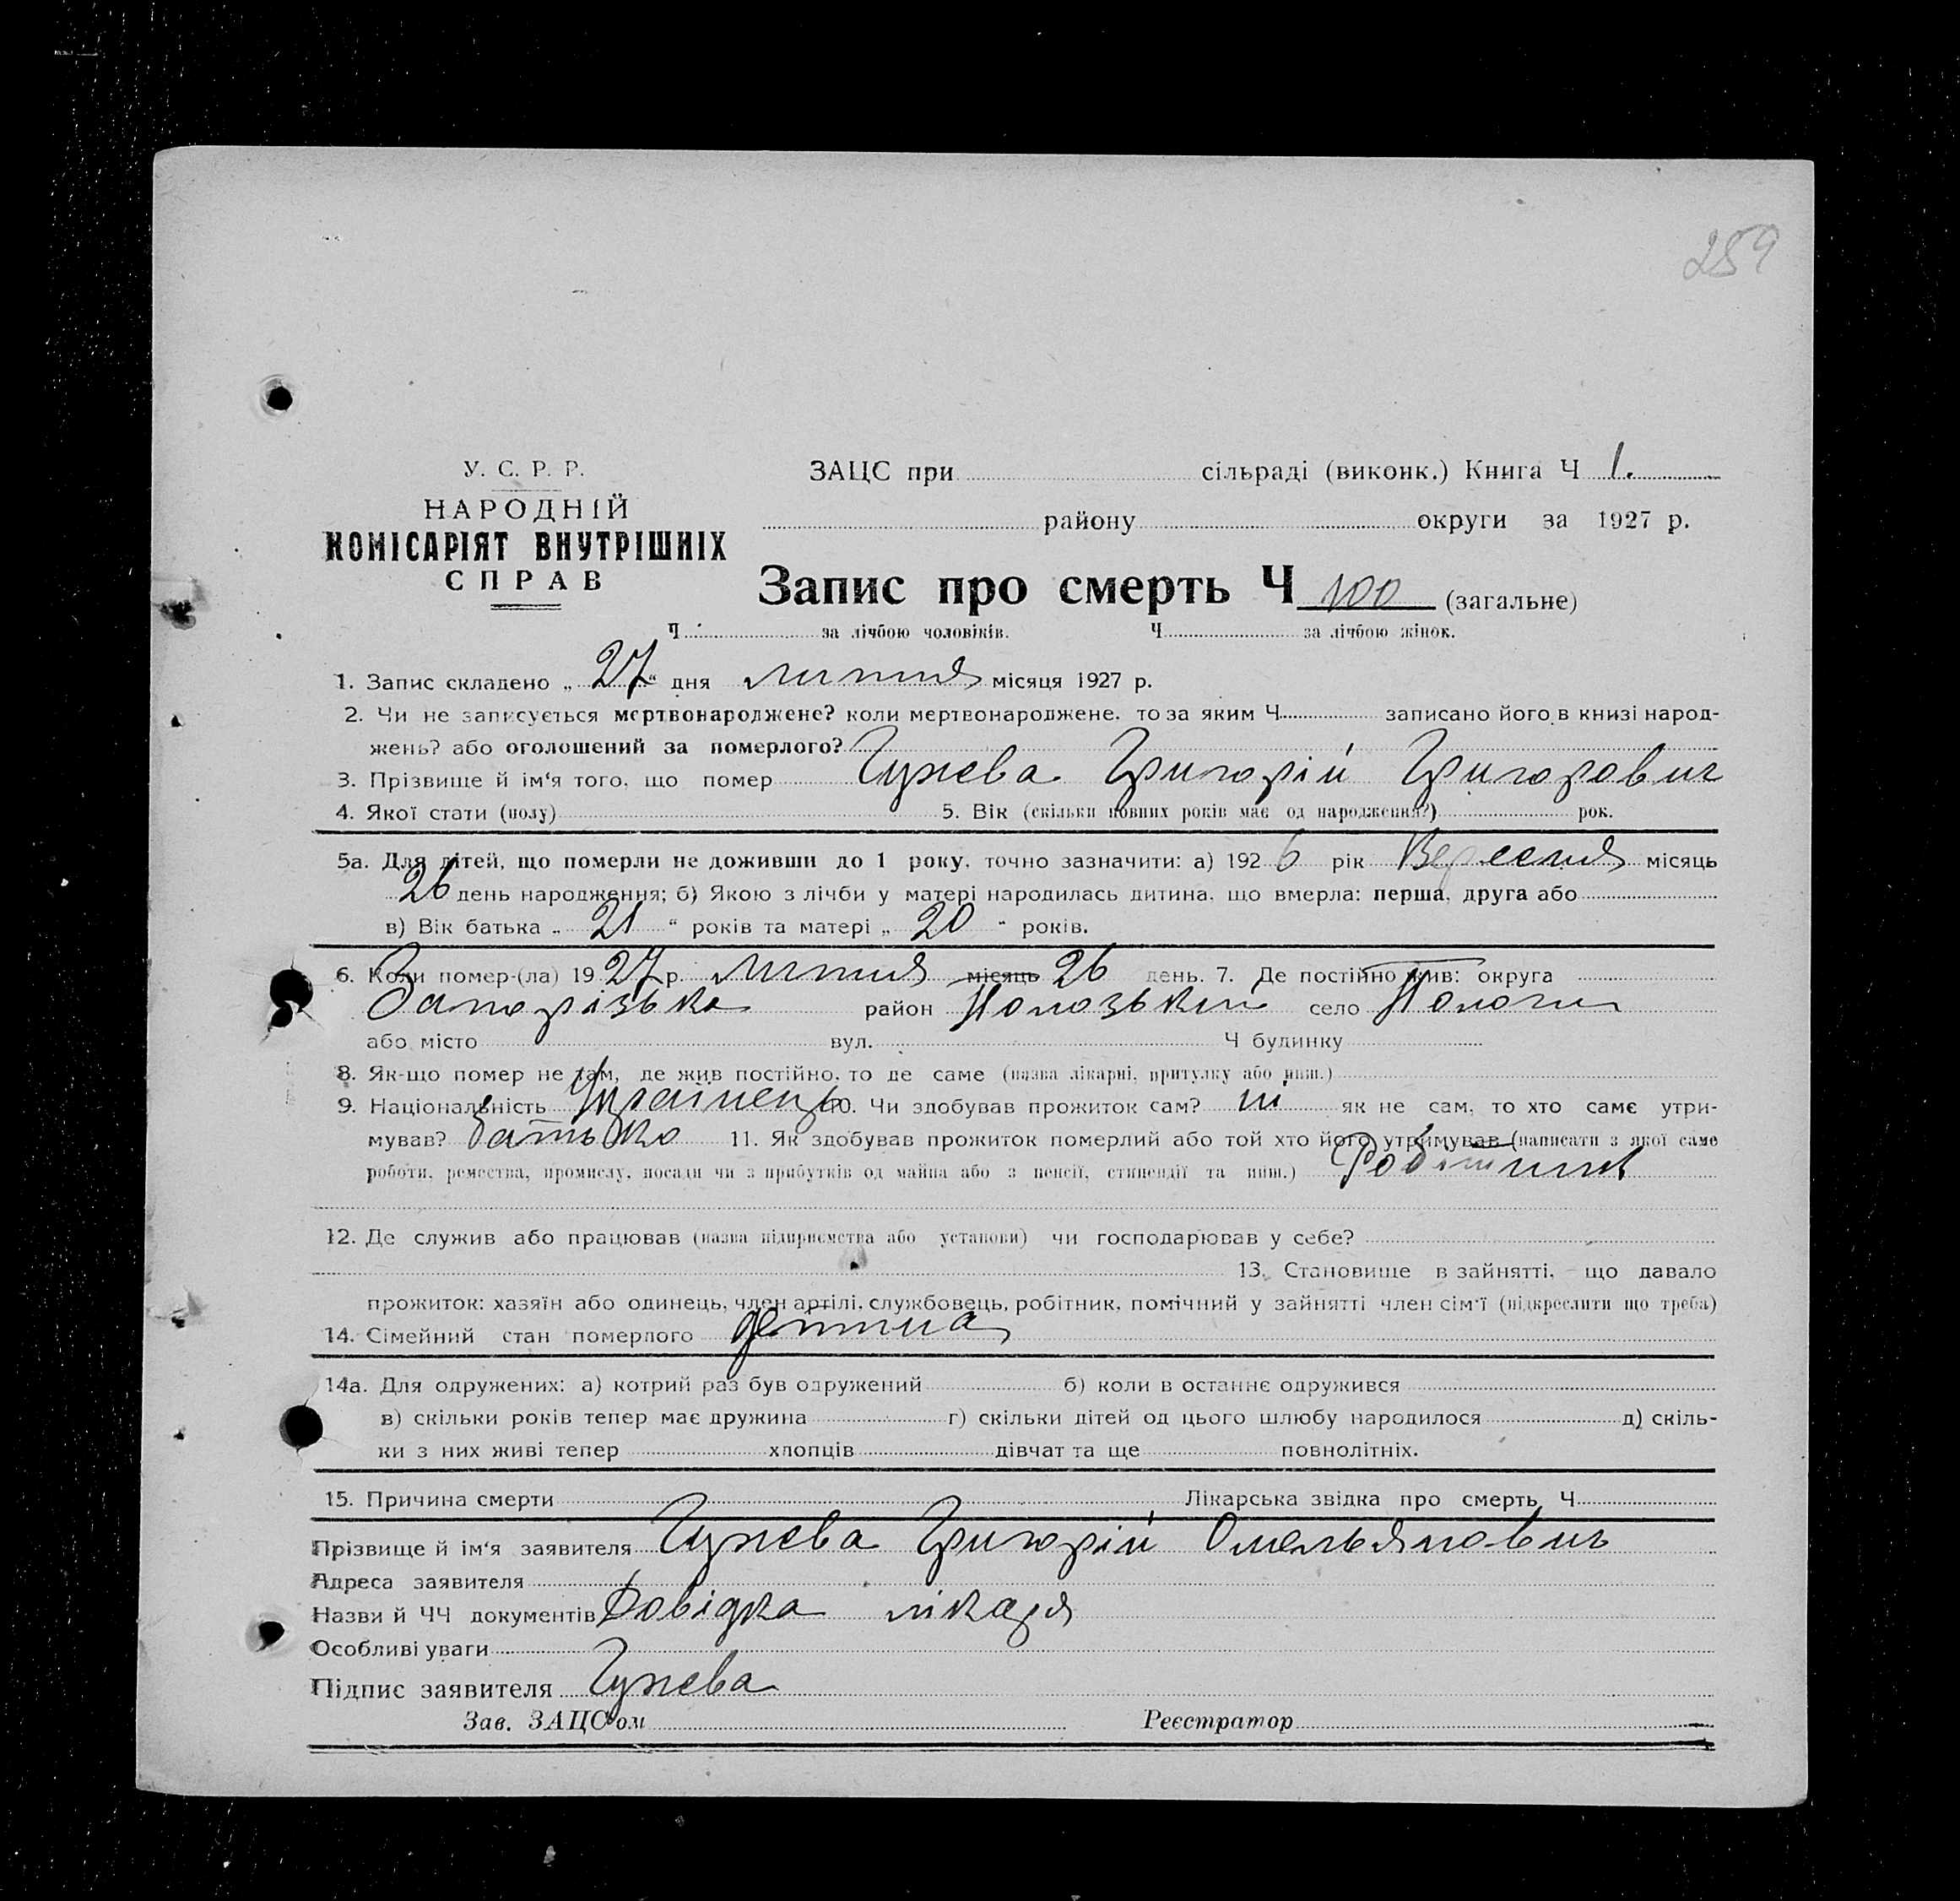 259
У. С. Р. Р.
НАРОДНІЙ
КОМІСАРІЯТ ВНУТРІШНІХ
СПРАВ
ЗАЦС при сільраді (виконк.) Книга Ч 1.
району округи за 1927 р.
Запис про смерть Ч 100 (загальне)
Ч за лічбою чоловіків. Ч за лічбою жінок.
1. Запис складено „ 27 “ дня липня місяця 1927 р.
2. Чи не записується мертвонароджене? коли мертвонароджене, то за яким Ч записано його в книзі народ-
жень? або оголошений за померлого?
3. Прізвище й ім‘я того, що помер Гунева Григорій Григорович
4. Якої стати (полу) 5. Вік (скільки повних років має од народження?) рок.
5а. Для дітей, що померли не доживши до 1 року, точно зазначити: а) 1926 рік Вересня місяць
26 день народження; б) Якою з лічби у матері народилась дитина, що вмерла: перша, друга або
в) Вік батька „ 21 “ років та матері „ 20 “ років.
6. Коли помер-(ла) 1927 р. липня місяць 26 день. 7. Де постійно жив: округа
Запорізька район Полозький село Пологи
або місто вул. Ч будинку
8. Як-що помер не там, де жив постійно, то де саме (назва лікарні, притулку або инш.)
9. Національність Українець 10. Чи здобував прожиток сам? ні як не сам, то хто саме утри-
мував? батько 11. Як здобував прожиток померлий або той хто його утримував (написати з якої саме
роботи, ремества, промислу, посади чи з прибутків од майна або з пенсії, стипендії та инш.) Робітник
12. Де служив або працював (назва підприємства або установи) чи господарював у себе?
13. Становище в зайнятті, що давало
прожиток: хазяїн або одинець, член артілі, службовець, робітник, помічний у зайнятті член сім‘ї (підкреслити що треба)
14. Сімейний стан померлого дитина
14а. Для одружених: а) котрий раз був одружений б) коли в останнє одружився
в) скільки років тепер має дружина г) скільки дітей од цього шлюбу народилося д) скіль-
ки з них живі тепер хлопців дівчат та ще повнолітніх.
15. Причина смерти Лікарська звідка про смерть Ч
Прізвище й ім‘я заявителя Гунева Григорій Омельянович
Адреса заявителя
Назви й ЧЧ документів Довідка лікаря
Особливі уваги
Підпис заявителя Гунева
Зав. ЗАЦС‘ом Реєстратор